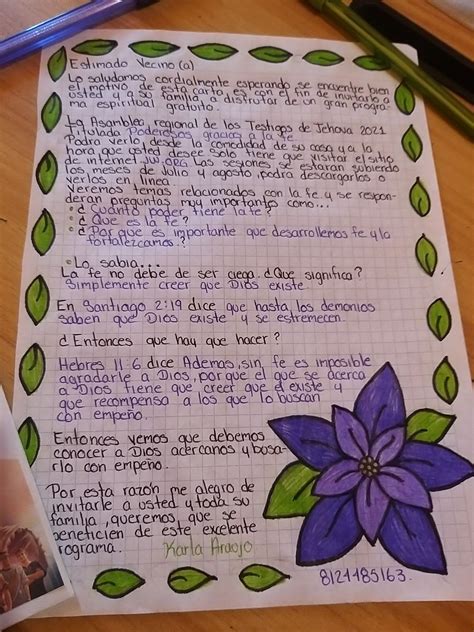 Estimado Vecino (a)
Lo saludamos cordialmente esperando se encuentre bien
el motivo de esta carta es con el fin de invitarlo a
usted y a su familia a disfrutar de un gran progra-
ma espiritual gratuito.
La Asamblea regional de los Testigos de Jehova 2021
Titulada Poderosos gracias a la fe
Podra verlo desde la comodidad de su casa y a la
hora que usted desee solo tiene que visitar el sitio
de internet JW.ORG Las sesiones se estaran subiendo
los meses de Julio y agosto, podra descargarlos o
verlos en linea
Veremos temas relacionados con la fe y se respon-
deran preguntas muy importantes como...
• ¿ Cuanto poder tiene la fe?
• ¿ Que es la fe?
• ¿ Por que es importante que desarrollemos fe y la
fortalezcamos?
• Lo sabia...
La fe no debe de ser ciega. ¿ Que significa?
Simplemente creer que Dios existe.
En Santiago 2:19 dice que hasta los demonios
saben que Dios existe y se estremecen.
¿ Entonces que hay que hacer?
Hebres 11:6 dice Ademas, sin fe es imposible
agradarle a Dios, porque el que se acerca
a Dios tiene que creer que el existe y
que recompensa a los que lo buscan
con empeño.
Entonces vemos que debemos
conocer a Dios acercanos y busca-
rlo con empeño.
Por esta razón me alegro de
invitarle a usted y toda su
familia, queremos que se
beneficien de este excelente
rograma. Karla Araujo
8121185163.